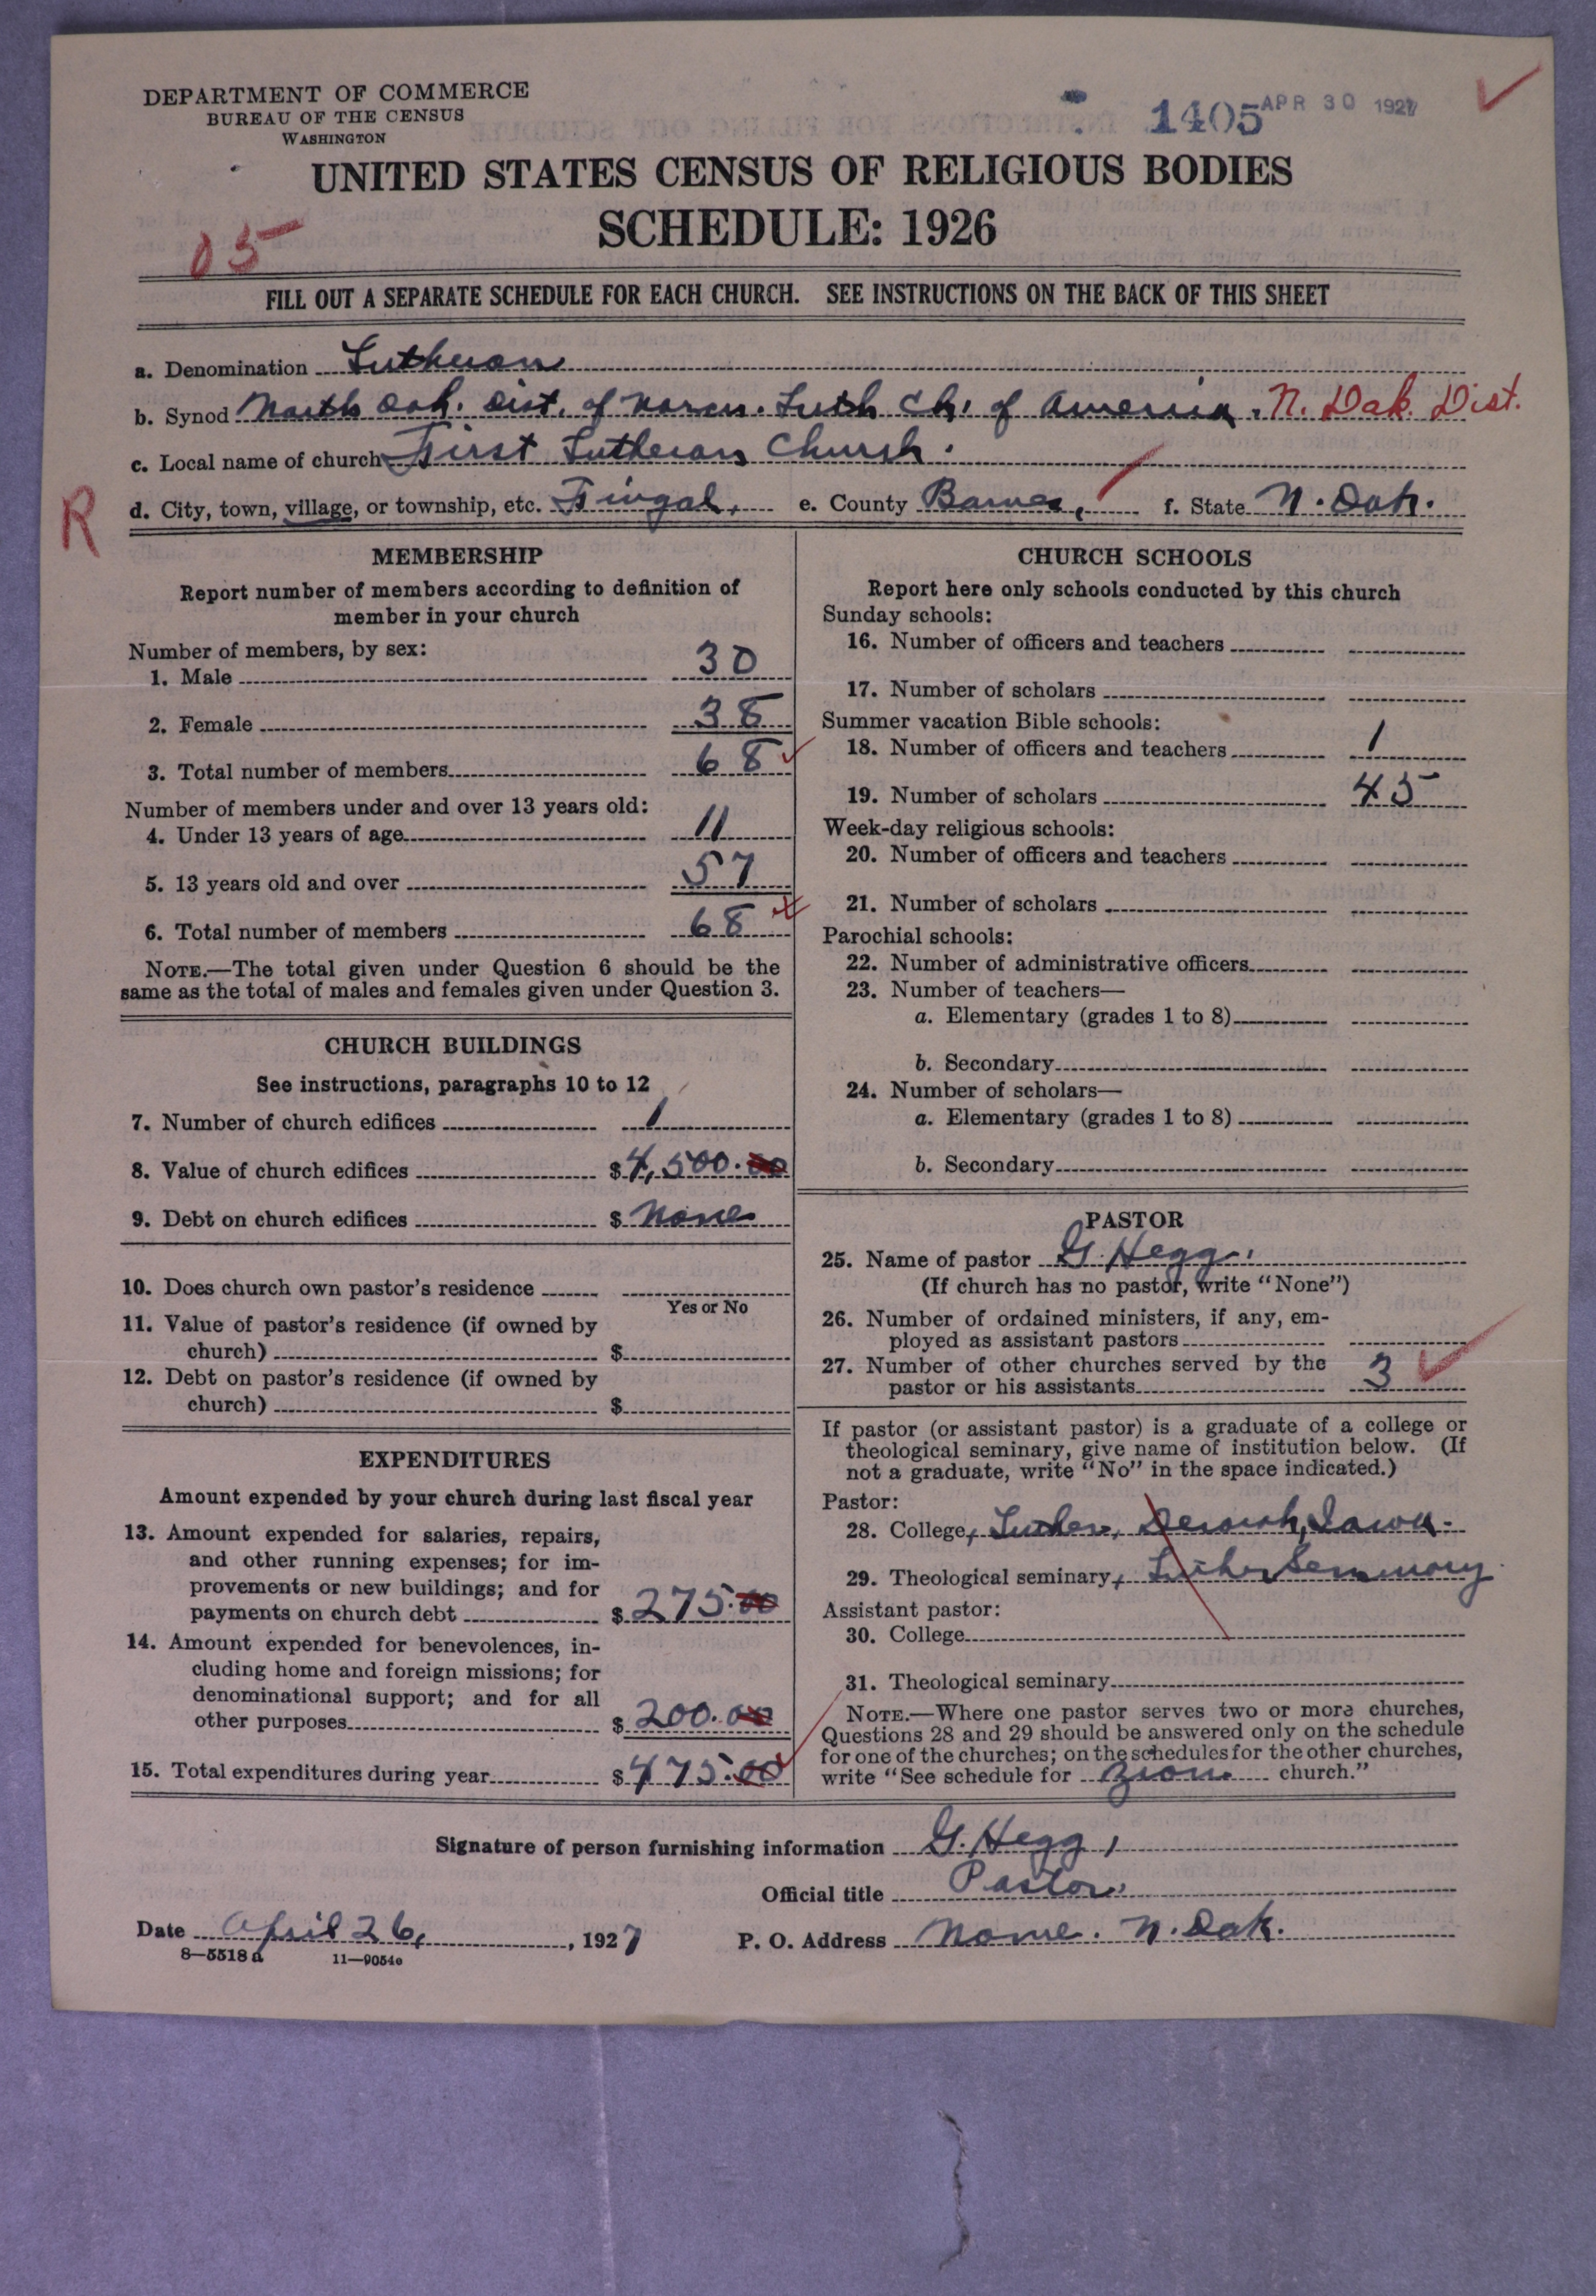 DEPARTMENT OF COMMERCE
BUREAU OF THE CENSUS
WASHINGTON
1405 APR 30 1927
UNITED STATES CENSUS OF RELIGIOUS BODIES
SCHEDULE: 1926
05
FILL OUT A SEPARATE SCHEDULE FOR EACH CHURCH. SEE INSTRUCTIONS ON THE BACK OF THIS SHEET
a. Denomination Lutheran
b. Synod North Dak. Dist. of Norw. Luth Ch. of America. N. Dak. Dist.
c. Local name of church First Lutheran Church.
R
d. City, town, village, or township, etc. Fingal, e. County Barnes, f. State N. Dak.
MEMBERSHIP
Report number of members according to definition of
member in your church
Number of members, by sex:
1. Male 30
2. Female 38
3. Total number of members 68
Number of members under and over 13 years old:
4. Under 13 years of age 11
5. 13 years old and over 57
6. Total number of members 68
NOTE.—The total given under Question 6 should be the
same as the total of males and females given under Question 3.
CHURCH BUILDINGS
See instructions, paragraphs 10 to 12
7. Number of church edifices 1
8. Value of church edifices $4,500.00
9. Debt on church edifices $ None
10. Does church own pastor's residence
Yes or No
11. Value of pastor's residence (if owned by
church) $
12. Debt on pastor's residence (if owned by
church) $
EXPENDITURES
Amount expended by your church during last fiscal year
13. Amount expended for salaries, repairs,
and other running expenses; for im-
provements or new buildings; and for
payments on church debt $275.00
14. Amount expended for benevolences, in-
cluding home and foreign missions; for
denominational support; and for all
other purposes $200.00
15. Total expenditures during year $475.00
CHURCH SCHOOLS
Report here only schools conducted by this church
Sunday schools:
16. Number of officers and teachers
17. Number of scholars
Summer vacation Bible schools:
18. Number of officers and teachers 1
19. Number of scholars 45
Week-day religious schools:
20. Number of officers and teachers
21. Number of scholars
Parochial schools:
22. Number of administrative officers
23. Number of teachers—
a. Elementary (grades 1 to 8)
b. Secondary
24. Number of scholars—
a. Elementary (grades 1 to 8)
b. Secondary
PASTOR
25. Name of pastor G. Hegg.
(If church has no pastor, write "None")
26. Number of ordained ministers, if any, em-
ployed as assistant pastors
27. Number of other churches served by the
pastor or his assistants 3
If pastor (or assistant pastor) is a graduate of a college or
theological seminary, give name of institution below. (If
not a graduate, write "No" in the space indicated.)
Pastor:
28. College, Luther, Decorah, Iowa.
29. Theological seminary, Luther Seminary
Assistant pastor:
30. College
31. Theological seminary
NOTE.—Where one pastor serves two or more churches,
Questions 28 and 29 should be answered only on the schedule
for one of the churches; on the schedules for the other churches,
write "See schedule for Zion church."
Signature of person furnishing information G. Hegg,
Official title Pastor.
Date April 26, 1927 P. O. Address Nome. N. Dak.
8—5518 a 11—9054e